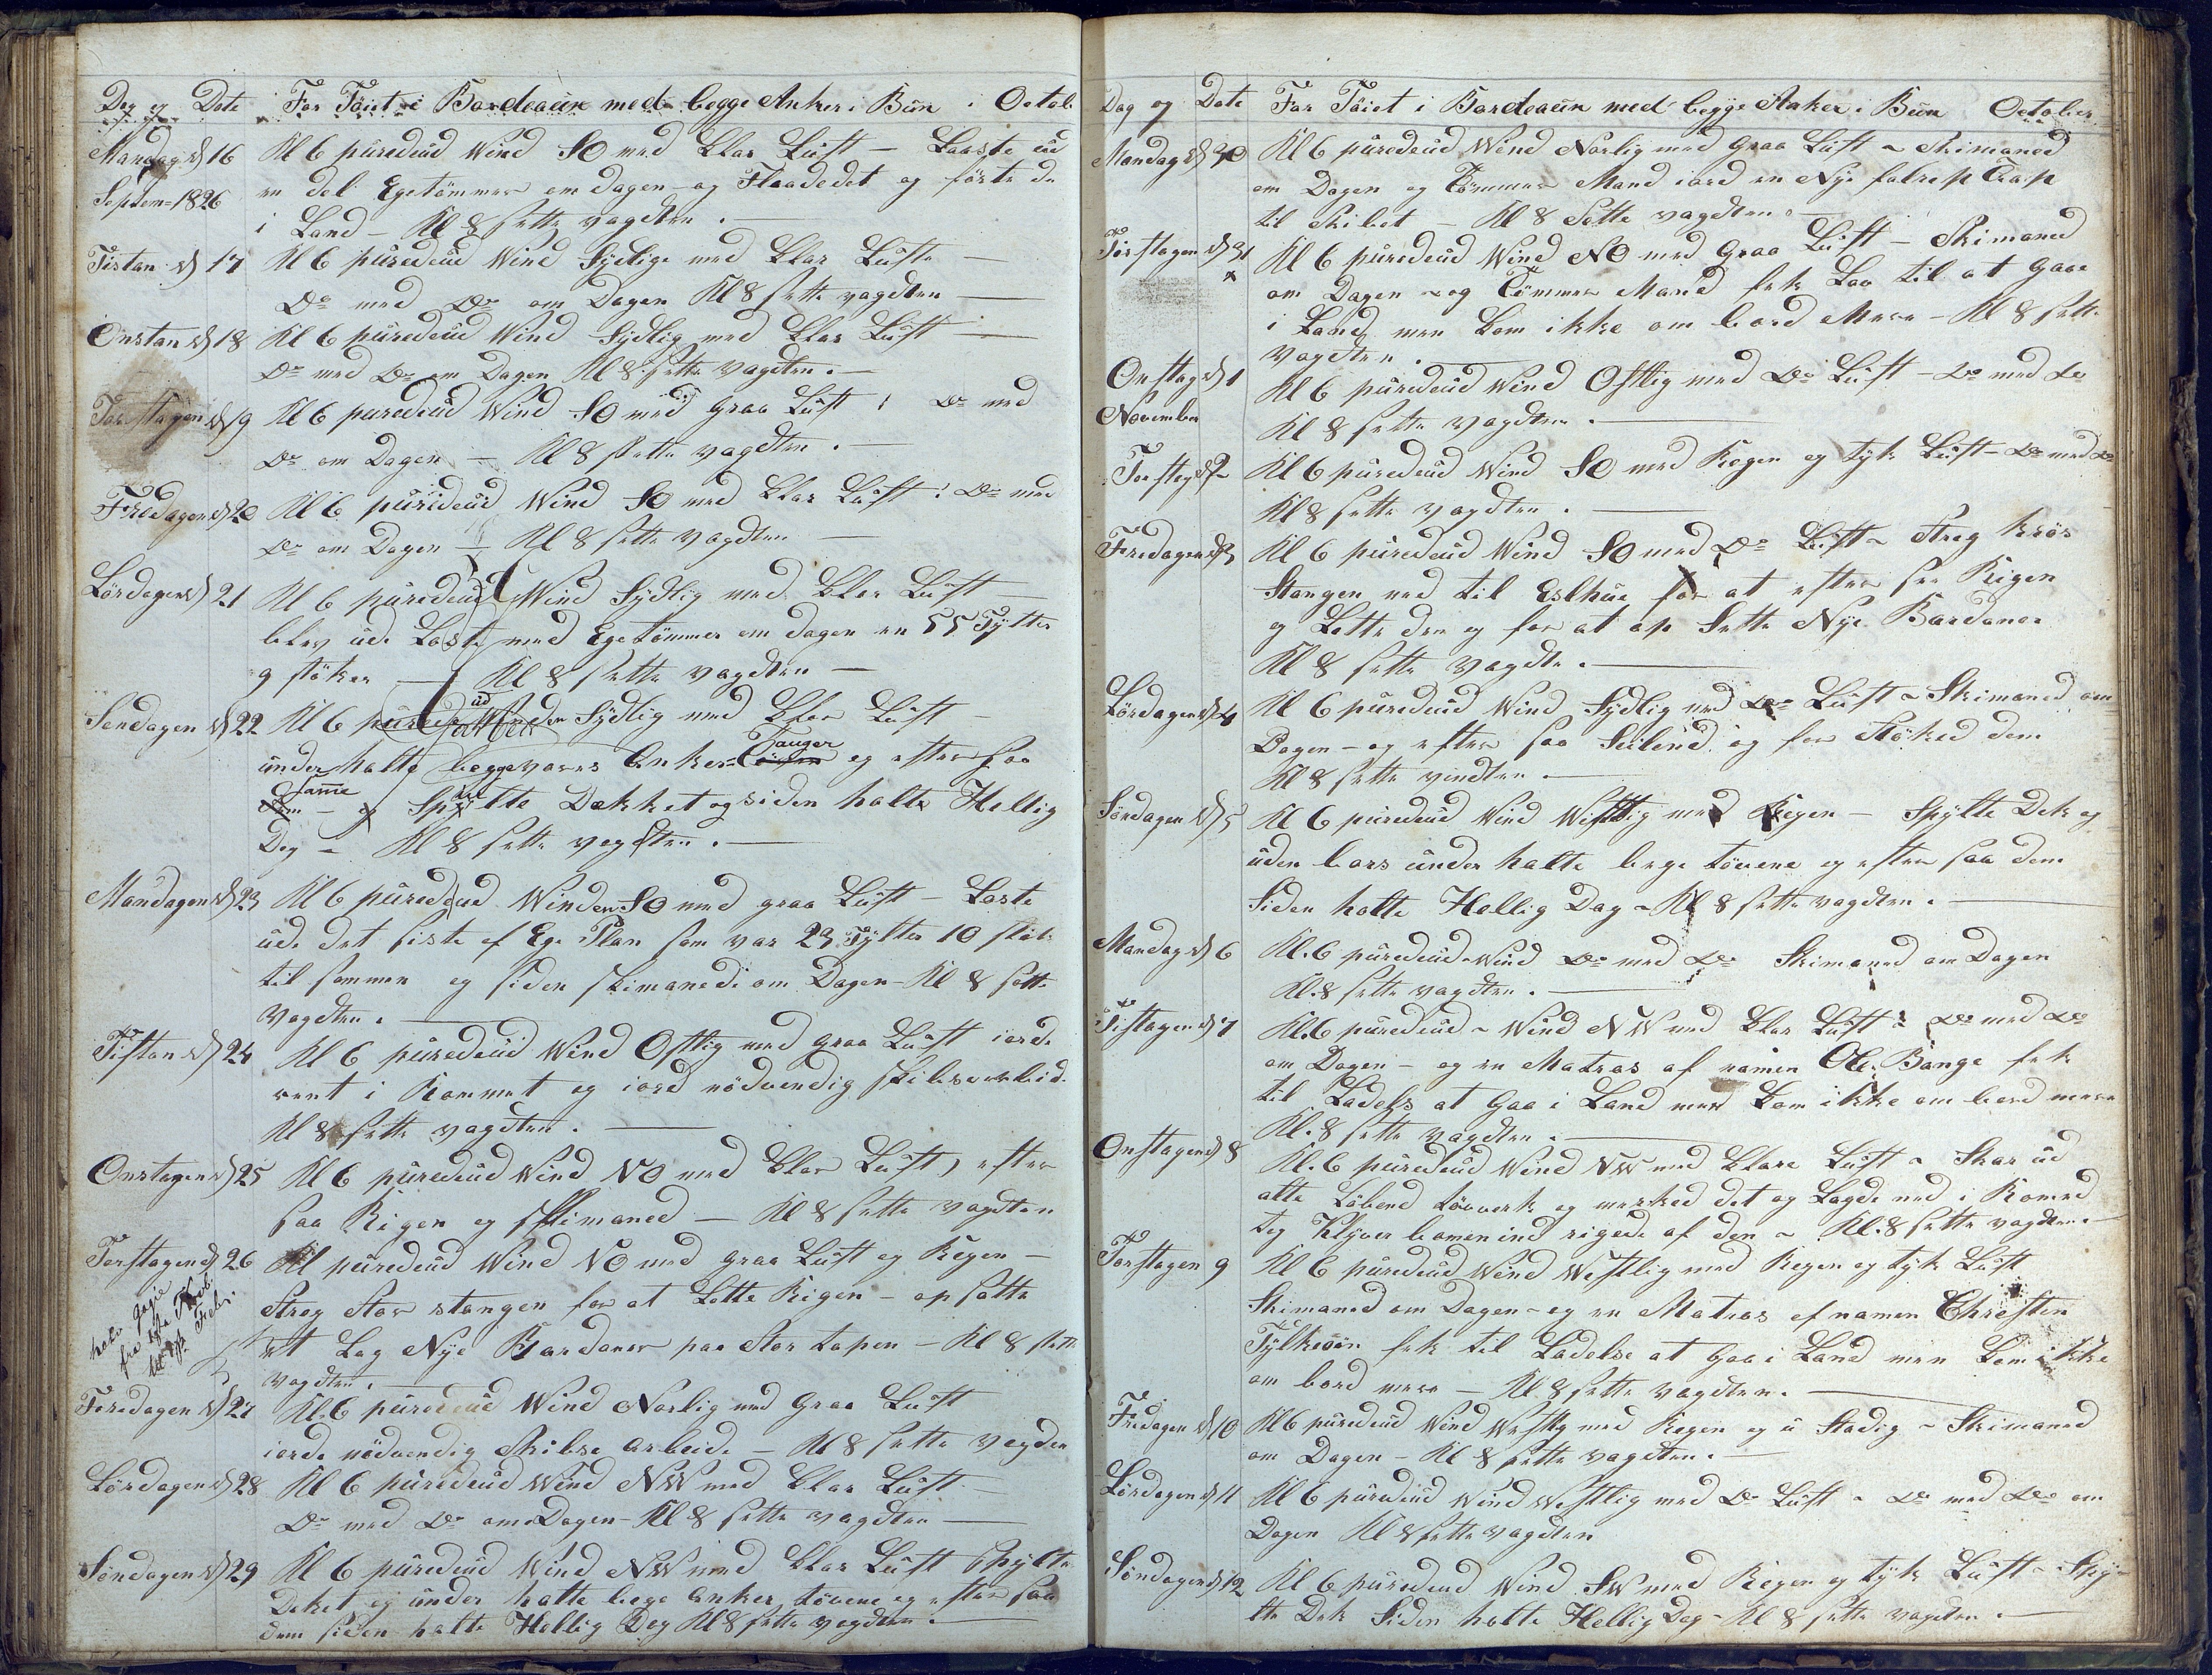 Dag og Dato For Töiet i Bordeaux med begge Anker i Bun i Octob.
Mandag d 16 Kl 6 püredeüd Wind SO med klar Luft — Laaste üd
Septem=1826 en del Egetömmer om dagen og Flaadedet og förte de
i Land — Kl 8 sette vagdten. —
Tistan d 17 Kl 6 püredeüd Wind Sydlige med klar Lufte —
Do med Do om Dagen Kl 8 sette vagdten —
Onstan d 18 Kl 6 püredeüd Wind Sydlig med klar Luft —
Do med Do om Dagen Kl 8 sette vagdten. —
Torstagen d 19 Kl 6 püredeüd Wind SO med graa Luft : Do med
Do om Dagen — Kl 8 sette vagdten. —
Fredagen d 20 Kl 6 püredeüd Wind SO med klar Luft : Do med
Do om Dagen — Kl 8 sette vagdten —
Lördagen d 21 Kl 6 püredeüd Wind Sydlig med klar Luft —
blev üde Loste med Egetömmer om dagen en 55 Tylter
9 stöker — Kl 8 sette vagdten —
Söndagen d 22 Kl 6 Sydlig med klar Luft —
ünder halte begge vores Anker Tauger og efter saa
Samme — Spülte Dækket og siden halte Hellig
Dag — Kl 8 sette vagdten. —
Mandagen d 23 Kl 6 püredeüd Winden SO med graa Luft — Loste
üde det siste af Ege Plan som var 23 Tylter 10 stök
til sammen og siden skimaned om Dagen — Kl 8 sette
vagdten. —
Tistan d 24 Kl 6 püredeüd Wind Ostlig med graa Luft iorde
rent i Rommet og iord nödvendig skibsarbeid.
Kl 8 sette vagdten. —
Onstagen d 25 Kl 6 püredeüd Wind NO med klar Luft, efter
saa Rigen og skimaned — Kl 8 sette vagdten
Torstagen d 26 Kl püredeüd Wind NO med graa Luft og Regen —
Strög Stor stangen for at Lette Rigen — op satte
havi gagie
fra
Febr.
et Lag Nye Bardoner paa Stor tapen — Kl 8 sette
vagdten. —
Feredagen d 27 Kl. 6 püredeüd Wind Norlig med Graa Luft
iorde nödvendig Skibse arbeide — Kl 8 sette vagden
Lördagen d 28 Kl 6 püredeüd Wind NW med klar Luft —
Do med Do om Dagen — Kl 8 sette vagdten —
Söndagen d 29 Kl 6 püredeüd Wind NW med klar Luft Spylte
Deket og ünder halte bege anker tövene og efter saa
dem siden halte Hellig Dag Kl 8 sette vagdten. —
Dag og Dato For Töiet i Bordeaux med begge Anker i Bun October
Mandag d 30 Kl 6 püredeüd Wind Norlig med Graa Luft — Skimaned
om Dagen og Tömmer Mand iord en Nye falrep Trap
til Skibet — Kl 8 Sette vagdten —
Tirstagen d 31 Kl 6 püredeüd Wind NO med Graa Luft — Skimaned
om Dagen og Tömmer Mand fek Lov til at Gaae
i Land men kom ikke om bord Mere — Kl 8 sette
vagdten. —
Onstag d 1 Kl 6 püredeüd Wind Ostlig med Do Luft — Do med Do
November Kl 8 sette vagdten. —
Torstag d 2 Kl 6 püredeüd Wind SO med Regen og tyk Luft — Do med Do
Kl 8 sette vagdten. —
Fredagen d 3 Kl 6 püredeüd Wind SO med Do Luft — Streg krös
Stangen ned til Eslhue for at efter see Rigen
og Lette den og for at op Sette Nye Bardoner
Kl 8 sette vagdte. —
Lördagen d 4 Kl 6 püredeüd Wind Sydlig med Do Luft — Skimaned om
Dagen — og efter saa Seilene og for Stöked dem
Kl 8 sette vindten —
Söndagen d 5 Kl 6 püredeüd Wind Westlig med Regen — Spylte Dek og
üden bors ünder halte bege tövene og efter saa dem
Siden halte Hellig Dag — Kl 8 sette vagdten. —
Mandag d 6 Kl. 6 püredeüd Wind Do med Do Skimaned om Dagen
Kl. 8 sette vagdten. —
Tistagen d 7 Kl. 6 püredeüd — Wind NW med klar Luft : Do med Do
om Dagen — og en Matros af namen Ole Bange fek
til Ladels at Gaa i Land men kom ikke om bord mere
Kl. 8 sette vagdten. —
Onstagen d 8 Kl. 6 püredeüd Wind NW med klare Luft — Skar üd
alle Löbend tövverk og merked det og Lagde ned i Romed
tog Klyver bomen ind rigede af den — Kl. 8 sette vagdten. —
Torstagen 9 Kl 6 püredeüd Wind Westlig med Regen og tyk Luft
Skimaned om Dagen — og en Matros af namen Christen
Tylkesön fek til Ladelse at Gaa i Land men kom ikke
om bord mere — Kl. 8 sette vagdten. —
Fredagen d 10 Kl 6 püredeüd Wind Westlig med Regen og ü Stadig — Skimaned
om Dagen — Kl 8 sette vagdten. —
Lördagen d 11 Kl 6 püredeüd Wind Westlig med Do Luft — Do med Do om
Dagen Kl 8 sette vagdten
Söndagen d 12 Kl 6 püredeüd Wind SW med Regen og tyk Luft — Spy-
lte Dek Siden halte Hellig Dag — Kl 8 sette vagdten. —